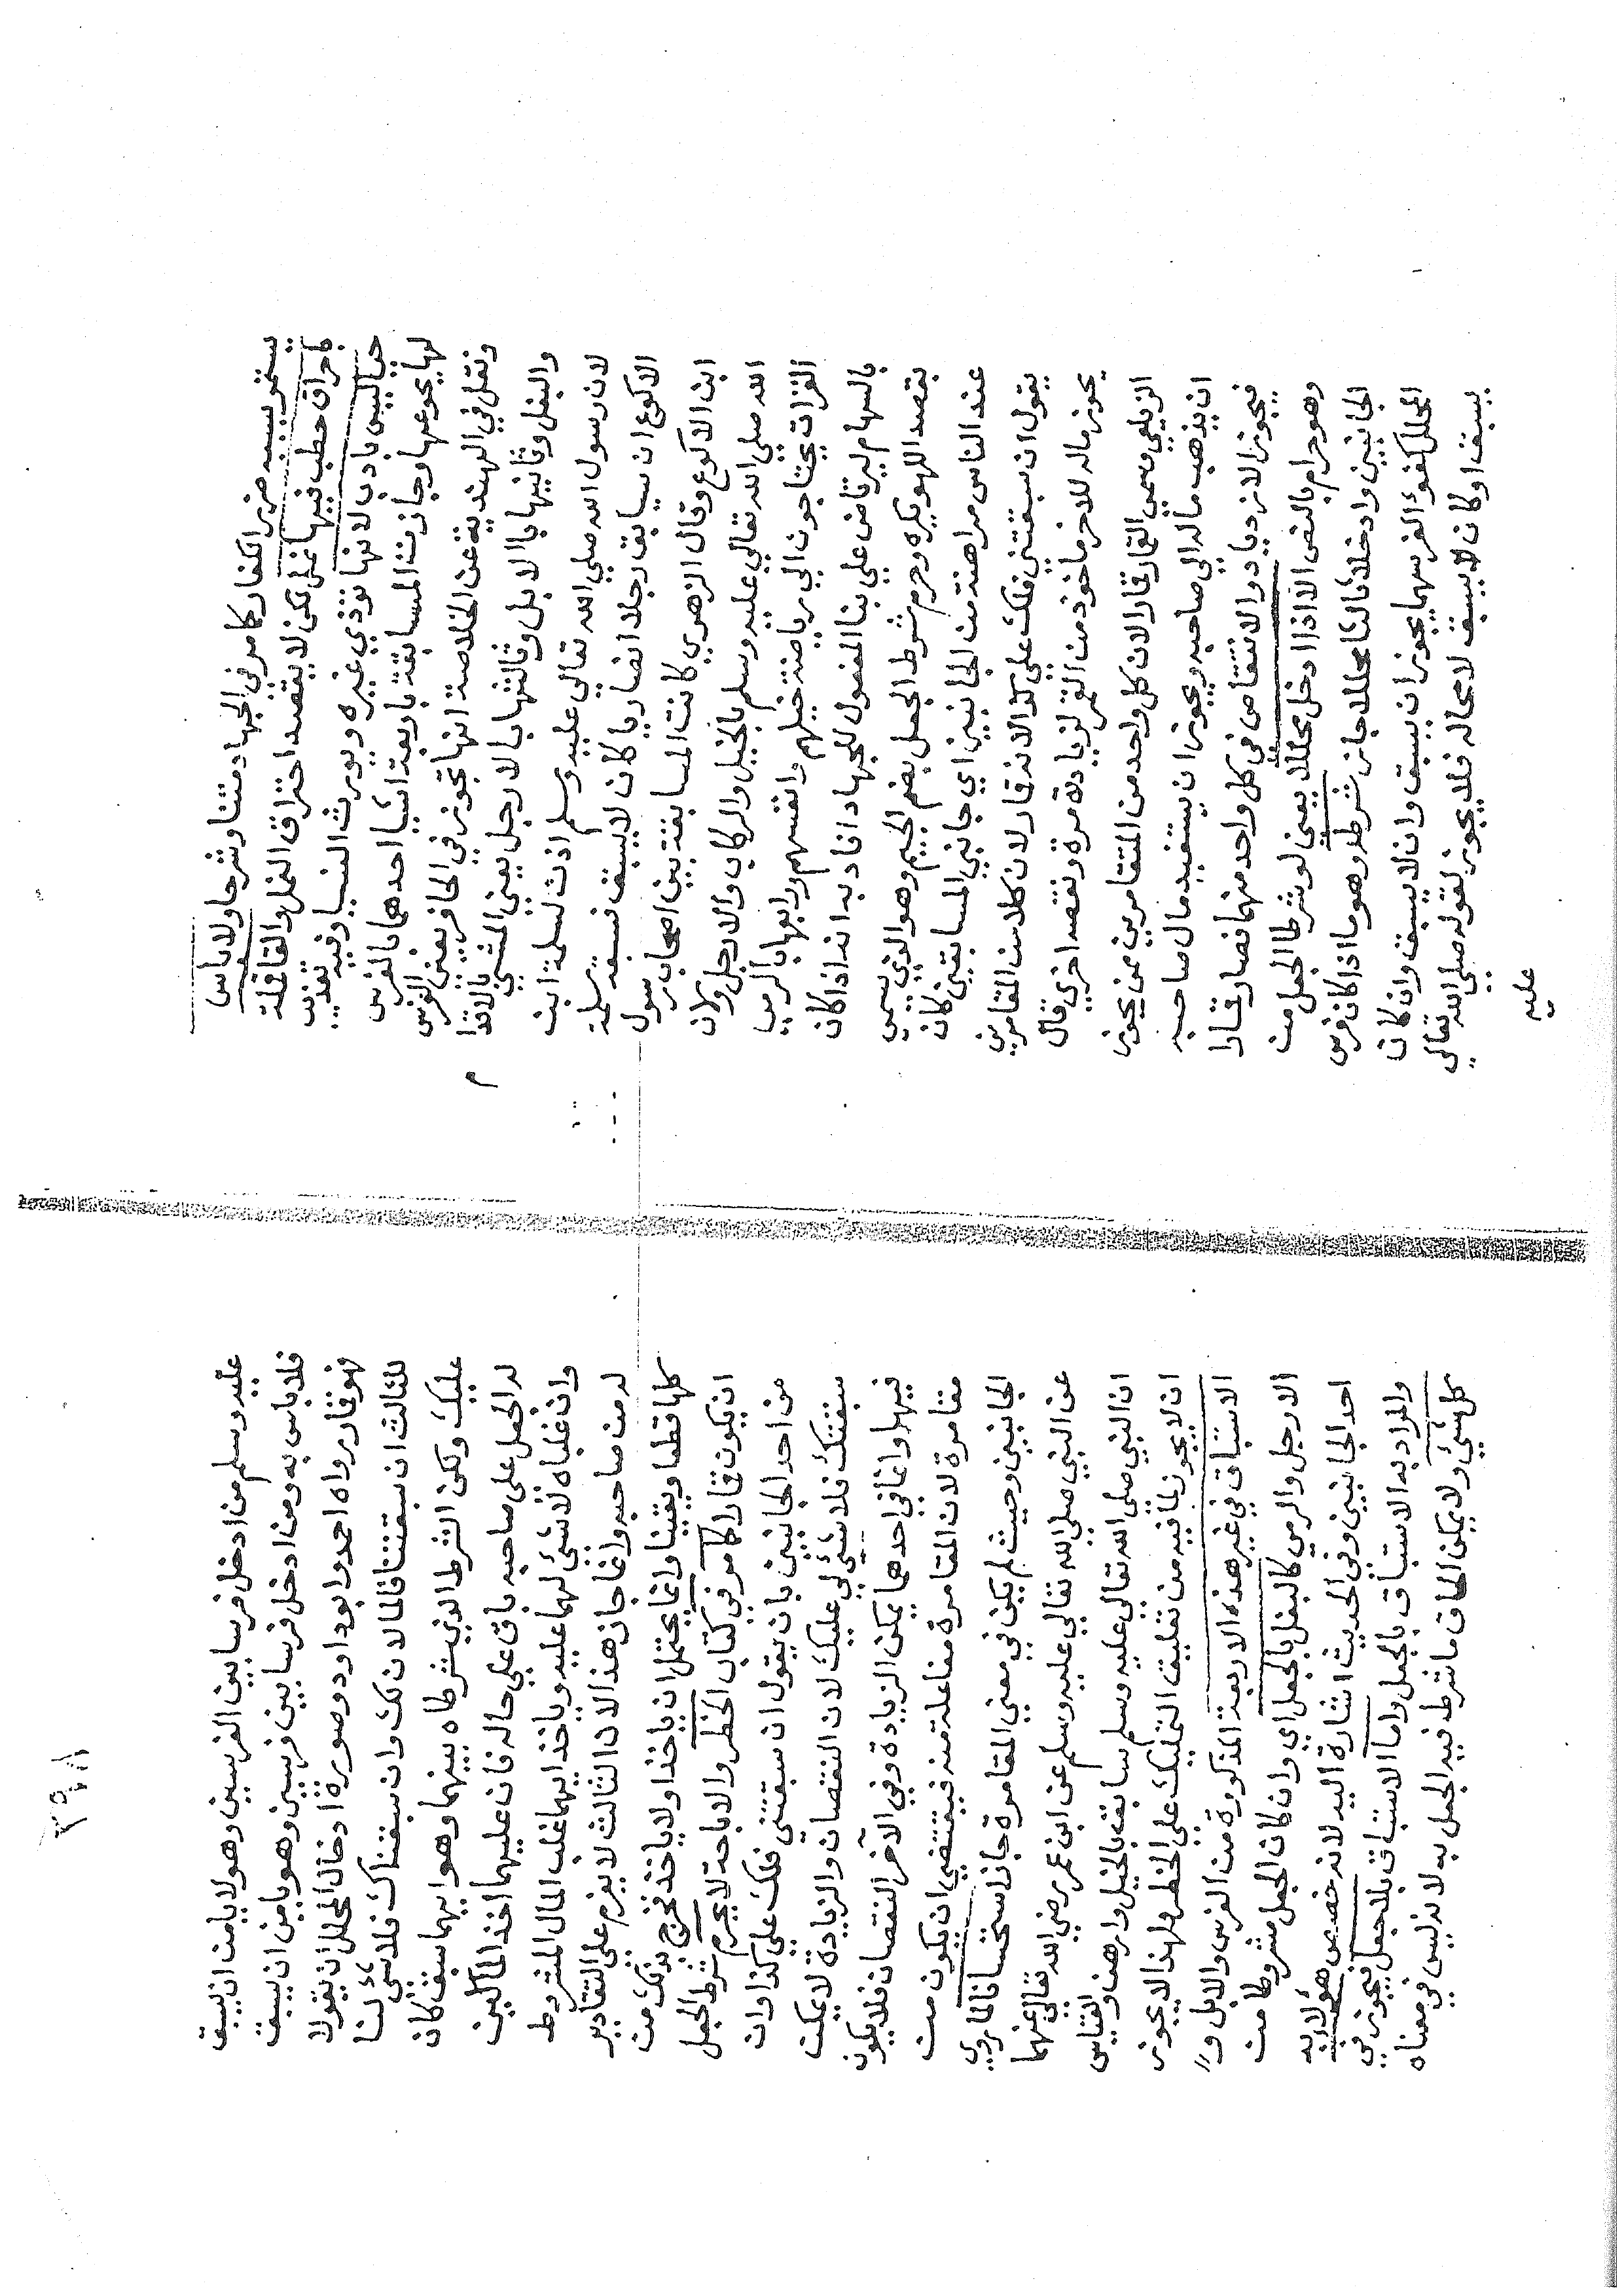 يستمر بسببه ضرر الكفار كما مر في الجهاد متنا وشرحا ولا باس
باحراق حطب فيها نمل لكن لا يقصد احتراق النمل والقافلة
حي ليس بادب لانها تؤذي غيره ويورث النسيا وفيه تعذيب
لها بجوعها وجازت المسابقة باربعة اشيا احدهما بالفرس
ونقل في النهد يه عن الخلاصة انها تجوز في الحافر يعني الفرس
والبغل وثانيها بالابل وثالثها بالارجل يعني المشي بالاقدام
لان رسول الله صلي الله تعالي عليه وسلم اذن لسلمة ابن
الاكوع ان يسابق رجلا انصاريا كان لا يسبق فسبقه سلمة
ابن الاكوع وقال الزهري كانت المسابقة بين اصحاب رسول
الله صلي الله تعالي عليه وسلم بالخيل والركاب والارجل ولان
الغزات يحتاجون الي رياضة خيلهم وانفسهم ورابعها بالرمي
بالسهام ليرتاض علي بنا المفعول للجهاد افاد به انه اذا كان
بقصد اللهو يكره وحرم شرط الجعل بضم الجيم وهو الذي يسمي
عند الناس مراهنة من الجانبين اي جانبي المسابقين كان
يقول ان سبقتني فلك علي كذا لانه قمار لان كلا من المقامرين
يجوز ماله للاخر ماخوذ من القمر لزيادة مرة ونقصه اخري قال
الزيلعي وسمي القمار قمارا لان كل واحد من المتقامرين ممن يجوز
ان يذهب ماله الي صاحبه ويجوز ان يستفيد مال صاحبه
فيجوز الازدياد والانتقاص في كل واحد منهما فصار قمارا
وهو حرام بالنص الا اذا ادخل محللا يعني لو شرط الجعل من
الجانبين وادخلا ثالثا محللا جاز شرطه وهو ما اذا كان فرس
المحلل كفؤ الفرسهما يجوز ان يسبق وان لا يسبق وان كان
يسبق او كان لا يسبق لا محالة فلا يجوز لقوله صلي الله تعالي
عليه
٣٩٨
عليه وسلم من ادخل فرسا بين الفرسين وهو لا يامن ان يسبق
فلا باس به ومن ادخل فرسا بين فرسين وهو يامن ان يسبق
فهو قمار رواه احمد وابو داود وصورة ادخال المحلل ان يقولا
للثالث ان سبقتنا فالمالان لك وان سبقناك فلا شئ لنا
عليك ولكن الشرط الذي شرطاه بينهما وهو ايهما سبق كان
له الجعل علي صاحبه باق علي حاله فان عليهما اخذ المالين
وان غلباه لا شئ لهما عليه وياخذ ايهما غلب المال المشروط
له من صاحبه وانما جاز هذا لان الثالث لا يغرم علي التقادير
كلها قطعا ويقينا وانما يحتمل ان ياخذ او لا ياخذ فخرج بذلك من
ان يكون قمارا كما مر في كتاب الحظر والاباحة لا يحرم شرط الجعل
من احد الجانبين بان يقول ان سبقتني فلك علي كذا وان
سبقتك فلا شئ لي عليك لان النقصان والزيادة لا يمكن
فيهما وانما في احدهما يمكن الزيادة وفي الآخر النقصان فلا يكون
مقامرة لان المقامرة مفاعلة منه فيقتضي ان يكون من
الجانبين وحيث لم يكن في معني المقامرة جاز استحسانا لما روي
عن النبي صلي الله تعالي عليه وسلم عن ابن عمر رضي الله تعالي عنهما
ان النبي صلي الله تعالي عليه وسلم سابق بالخيل وراهن والقياس
ان لا يجوز لما فيه من تعليق التمليك علي الخطر ولهذا لا يجوز
الاستباق في غير هذه الاربعة المذكورة من الفرس والابل و
الارجل والرمي كالبغل بالجعل اي وان كان الجعل مشروطا من
احد الجانبين وفي الحديث اشارة اليه لانه خصص هؤلاء به
والمراد به الاستباق بالجعل واما الاستباق بلا جعل فيجوز في
كل شئ ولا يمكن الحاق ما شرط فيه الجعل به لانه ليس في معناه